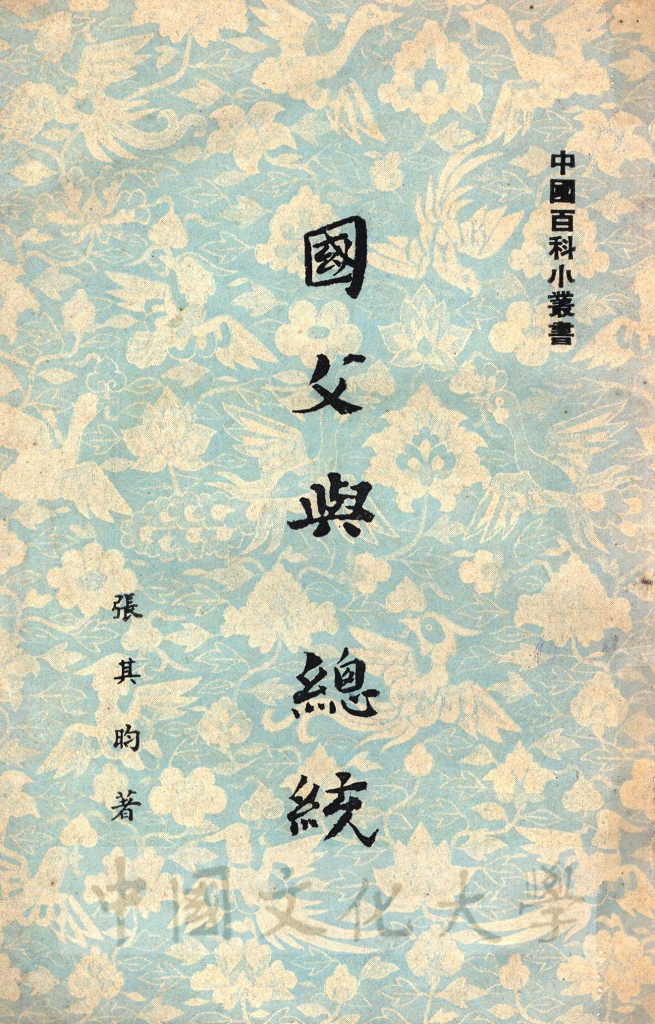 中國百科小叢書
國父與總統
張其昀著
中国文化大學